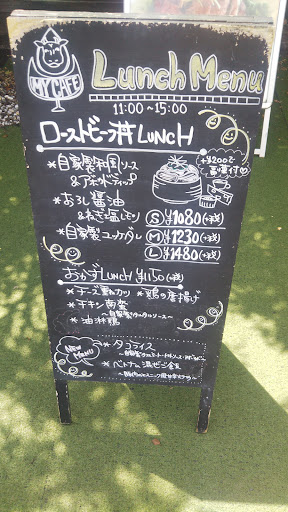 MY CAFE
Lunch Menu
11:00~15:00
ローストビーフ丼 LUNCH
*自家製和風ソース
&アボカドディップ
*おろし醤油
&ねぎ塩レモン
*自家製ユッケダレ
+¥200で
S ¥1080(+税)
M ¥1230(+税)
L ¥1480(+税)
おかずLUNCH ¥1150(+税)
*チーズ重ねカツ *鶏の唐揚げ
*チキン南蛮
~自家製タルタルソース~
*油淋鶏
NEW MENU
*タコライス
*ベトナム混ぜご飯